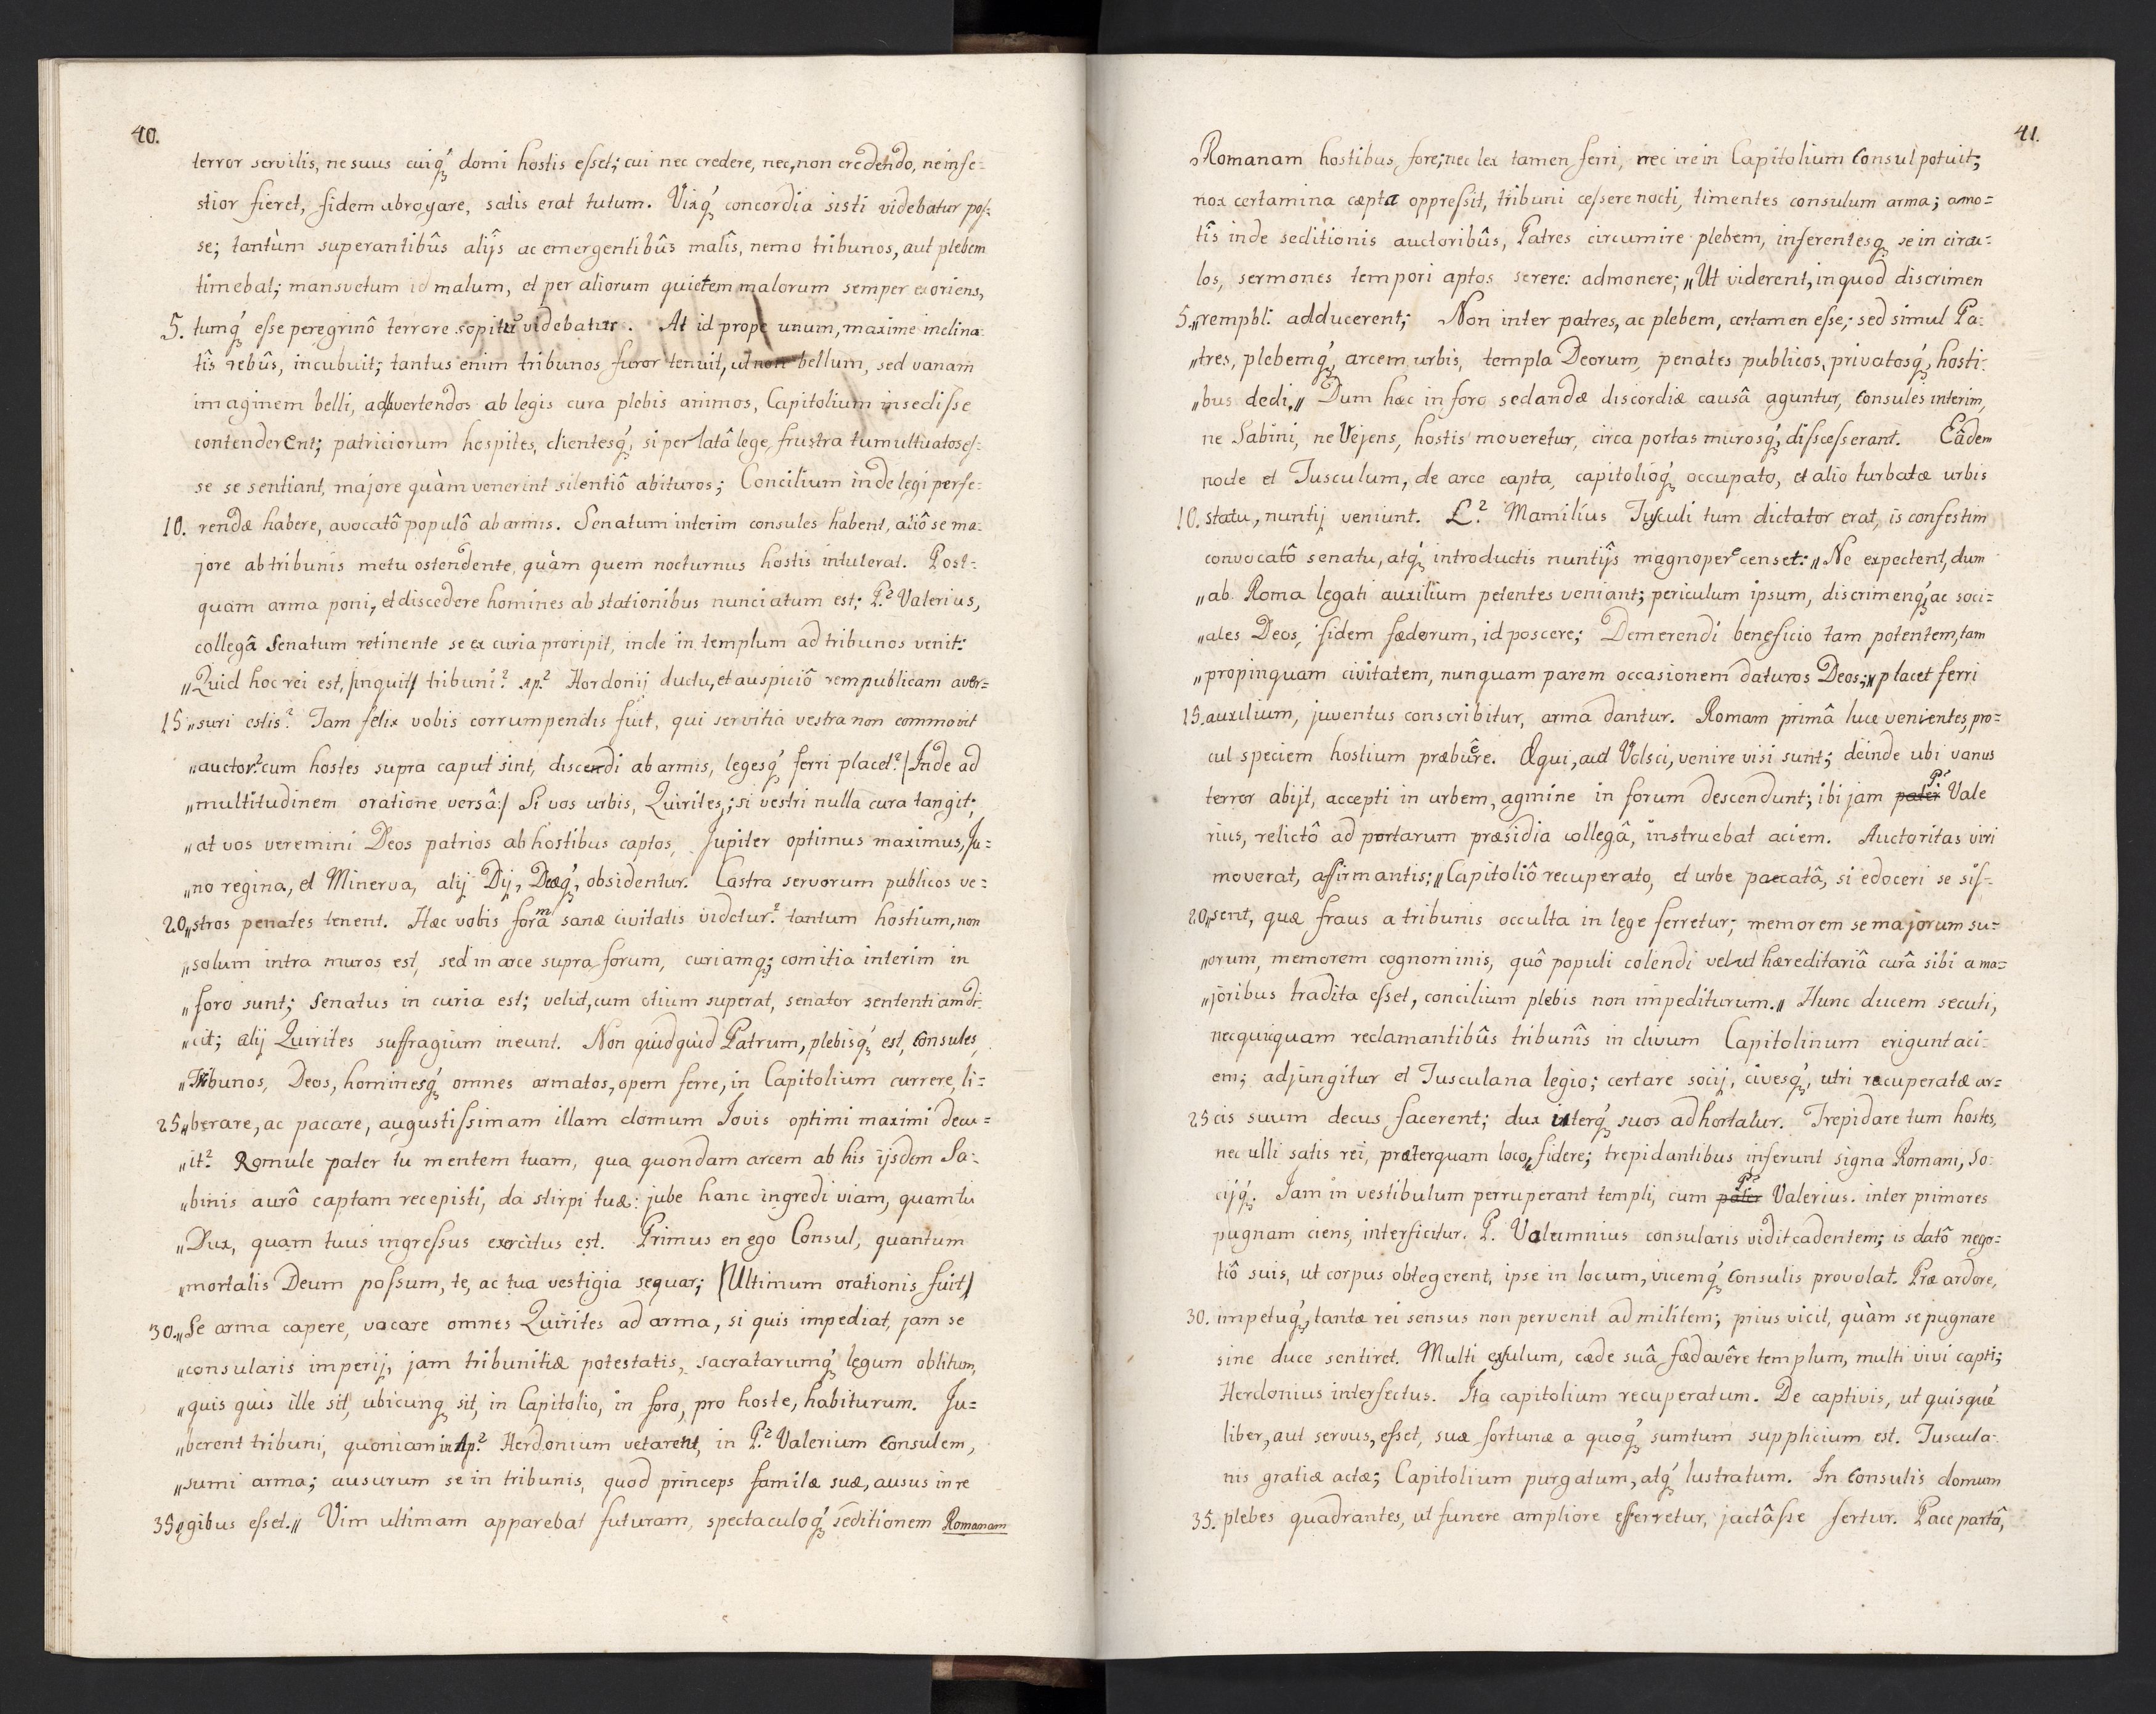 40.
terror servilis, ne suus cuiq́ꝫ domi hostis eſset; cui nec credere, nec, non credendo, ne infe-
stior fieret, fidem abrogare, satis erat tutum. Vixq́ꝫ concordia sisti videbatur poſ-
se; tantùm superantibûs alijs ac emergentibûs malîs, nemo tribunos, aut plebem
timebat; mansvetum id malum, et per aliorum quietem malorum semper exoriens,
5. tumq́ꝫ eſse peregrinô terrore sopitũ videbatur. At id prope unum, maxime inclina-
tîs rebûs, incubuit; tantus enim tribunos furor tenuit, ut non bellum, sed vanam
imaginem belli, ad avertendos ab legis cura plebis animos, Capitolium insediſse
contenderent; patriciorum hospites, clientesq́ꝫ, si perlatâ lege, frustra tumultuatos eſ-
se se sentiant, majore quàm venerint silentiô abituros; Concilium inde legi perfe-
10. rendæ habere, avocatô populô ab armis. Senatum interim consules habent, aliô se ma-
jore ab tribunis metu ostendente, quàm quem nocturnus hostis intulerat. Post-
quam arma poni, et discedere homines ab stationibus nunciatum est; P.² Valerius,
collegâ Senatum retinente se ex curia proripit, inde in templum ad tribunos venit:
„Quid hoc rei est, /inquit/ tribuni? Ap.² Herdonij ductu, et auspiciô rempublicam ever-
15 „suri estis? Tam felix vobis corrumpendis fuit, qui servitia vestra non commovit
„auctor? cum hostes supra caput sint, discedi ab armis, legesq́ꝫ ferri placet? /Inde ad
„multitudinem oratione versâ:/ Si vos urbis, Quirites,; si vestri nulla cura tangit;
„at vos veremini Deos patrios ab hostibus captos, Jupiter optimus maximus, Ju-
„no regina, et Minerva, alij Dij, Deæq́ꝫ, obsidentur. Castra servorum publicos ve-
20„stros penates tenent. Hæc vobis foram sanæ civitatis videtur? tantum hostium, non
„solum intra muros est, sed in arce supra forum, curiamqꝫ; comitia interim in
„foro sunt; Senatus in curia est; velut, cum otium superat, senator sententiam di-
„cit; alij Quirites suffragium ineunt. Non quidquid Patrum, plebisq́ꝫ est, Consules,
„Tribunos, Deos, hominesq́ꝫ omnes armatos, opem ferre, in Capitolium currere, li-
25„berare, ac pacare, augustiſsimam illam domum Jovis optimi maximi decu-
„it? Romule pater tu mentem tuam, qua quondam arcem ab his ijsdem Sa-
„binis aurô captam recepisti, da stirpi tuæ: jube hanc ingredi viam, quam tu
„Dux, quam tuus ingreſsus exercitus est. Primus en ego Consul, quantum
„mortalis Deum poſsum, te, ac tua vestigia sequar; /Ultimum orationis fuit/
30.„Se arma capere, vocare omnes Quirites ad arma, si quis impediat, jam se
„consularis imperij, jam tribunitiæ potestatis, sacratarumq́ꝫ legum oblitum,
„quis quis ille sit, ubicunqꝫ sit, in Capitolio, in foro, pro hoste, habiturum. Ju-
„berent tribuni, quoniam in Ap.² Herdonium vetarent, in P.² Valerium Consulem,
„sumi arma; ausurum se in tribunis, quod princeps familæ suæ, ausus in re
35„gibus eſset.„ Vim ultimam apparebat futuram, spectaculoq́ꝫ seditionem Romanam
41.
Romanam hostibus fore; nec lex tamen ferri, nec ire in Capitolium Consul potuit;
nox certamina cæpta oppreſsit, tribuni ceſsere nocti, timentes consulum arma; amo-
tîs inde seditionis auctoribûs, Patres circumire plebem, inferentesqꝫ se in circu-
los, sermones tempori aptos serere: admonere; „Ut viderent, in quod discrimen
5.„rempbl: adducerent; Non inter patres, ac plebem, certamen eſse; sed simul Pa-
„tres, plebemq́ꝫ, arcem urbis, templa Deorum, penates publicos, privatosq́ꝫ, hosti-
„bus dedi.„ Dum hæc in foro sedandæ discordiæ causâ aguntur, Consules interim,
ne Sabini, ne Vejens, hostis moveretur, circa portas murosq́ꝫ, diſsceſserant. Eâdem
nocte et Tusculum, de arce capta, capitolioq́ꝫ occupato, et alio turbatæ urbis
10. statu, nuntij veniunt. L.² Mamilius Tusculi tum dictator erat, is confestim
convocatô senatu, atq́ꝫ introductis nuntijs magnopere censet: „Ne expectent, dum
„ab Roma legati auxilium petentes veniant; periculum ipsum, discrimenq́ꝫ, ac soci-
„ales Deos, fidem fæderum, id poscere; Demerendi beneficio tam potentem, tam
„propinquam civitatem, nunquam parem occasionem daturos Deos;„ placet ferri
15. auxilium, juventus conscribitur, arma dantur. Romam primâ luce venientes, pro-
cul speciem hostium præbuêre. Æqui, aut Volsci, venire visi sunt; deinde ubi vanus
terror abijt, accepti in urbem, agmine in forum descendunt; ibi jam pater P.² Vale
rius, relictô ad portarum præsidia collegâ, instruebat aciem. Auctoritas viri
moverat, affirmantis; „Capitoliô recuperato, et urbe pacatâ, si edoceri se siſ-
20„sent, quæ fraus a tribunis occulta in lege ferretur; memorem se majorum su-
„orum, memorem cognominis, quô populi colendi velut hæreditariâ curâ sibi a ma-
„joribus tradita eſset, concilium plebis non impediturum.„ Hunc ducem secuti,
necquicquam reclamantibûs tribunîs in clivum Capitolinum erigunt aci-
em; adjungitur et Tusculana legio; certare socij, civesq́ꝫ, utri recuperatæ ar-
25 cis suum decus facerent; dux uterq́ꝫ suos adhortatur. Trepidare tum hostes,
nec ulli satis rei, præterquam loco, fidere; trepidantibus inferunt signa Romani, So-
cijq́ꝫ. Jam in vestibulum perruperant templi, cum pater P.² Valerius. inter primores
pugnam ciens, interficitur. P. Volumnius consularis vidit cadentem; is datô nego-
tiô suis, ut corpus obtegerent, ipse in locum, vicemq́ꝫ Consulis provolat. Præ ardore,
30. impetuq́ꝫ, tantæ rei sensus non pervenit ad militem; prius vicit, quàm se pugnare
sine duce sentiret. Multi exsulum, cæde suâ fædavêre templum, multi vivi capti;
Herdonius interfectus. Ita capitolium recuperatum. De captivis, ut quisque
liber, aut servus, eſset, suæ fortunæ a quoq́ꝫ sumtum supplicium est. Tuscula-
nis gratiæ actæ; Capitolium purgatum, atq́ꝫ lustratum. In Consulis domum
35. plebes quadrantes, ut funere ampliore efferretur, jactâſse fertur. Pace partâ,